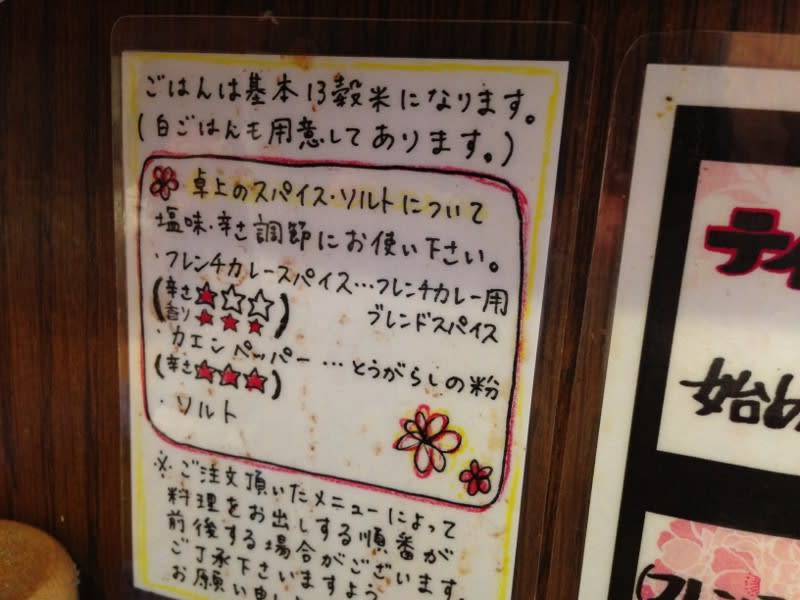 ごはんは基本13穀米になります。
(白ごはんも用意してあります。)
卓上のスパイス・ソルトについて
塩味・辛さ調節にお使い下さい。
・フレンチカレースパイス…フレンチカレー用
ブレンドスパイス
(辛さ★☆☆
香り★★★)
・カエンペッパー…とうがらしの粉
(辛さ★★★)
・ソルト
※ご注文頂いたメニューによって
料理をお出しする順番が
前後する場合がございます。
ご了承下さいますよう
お願い申し
ティ
始め
フレン